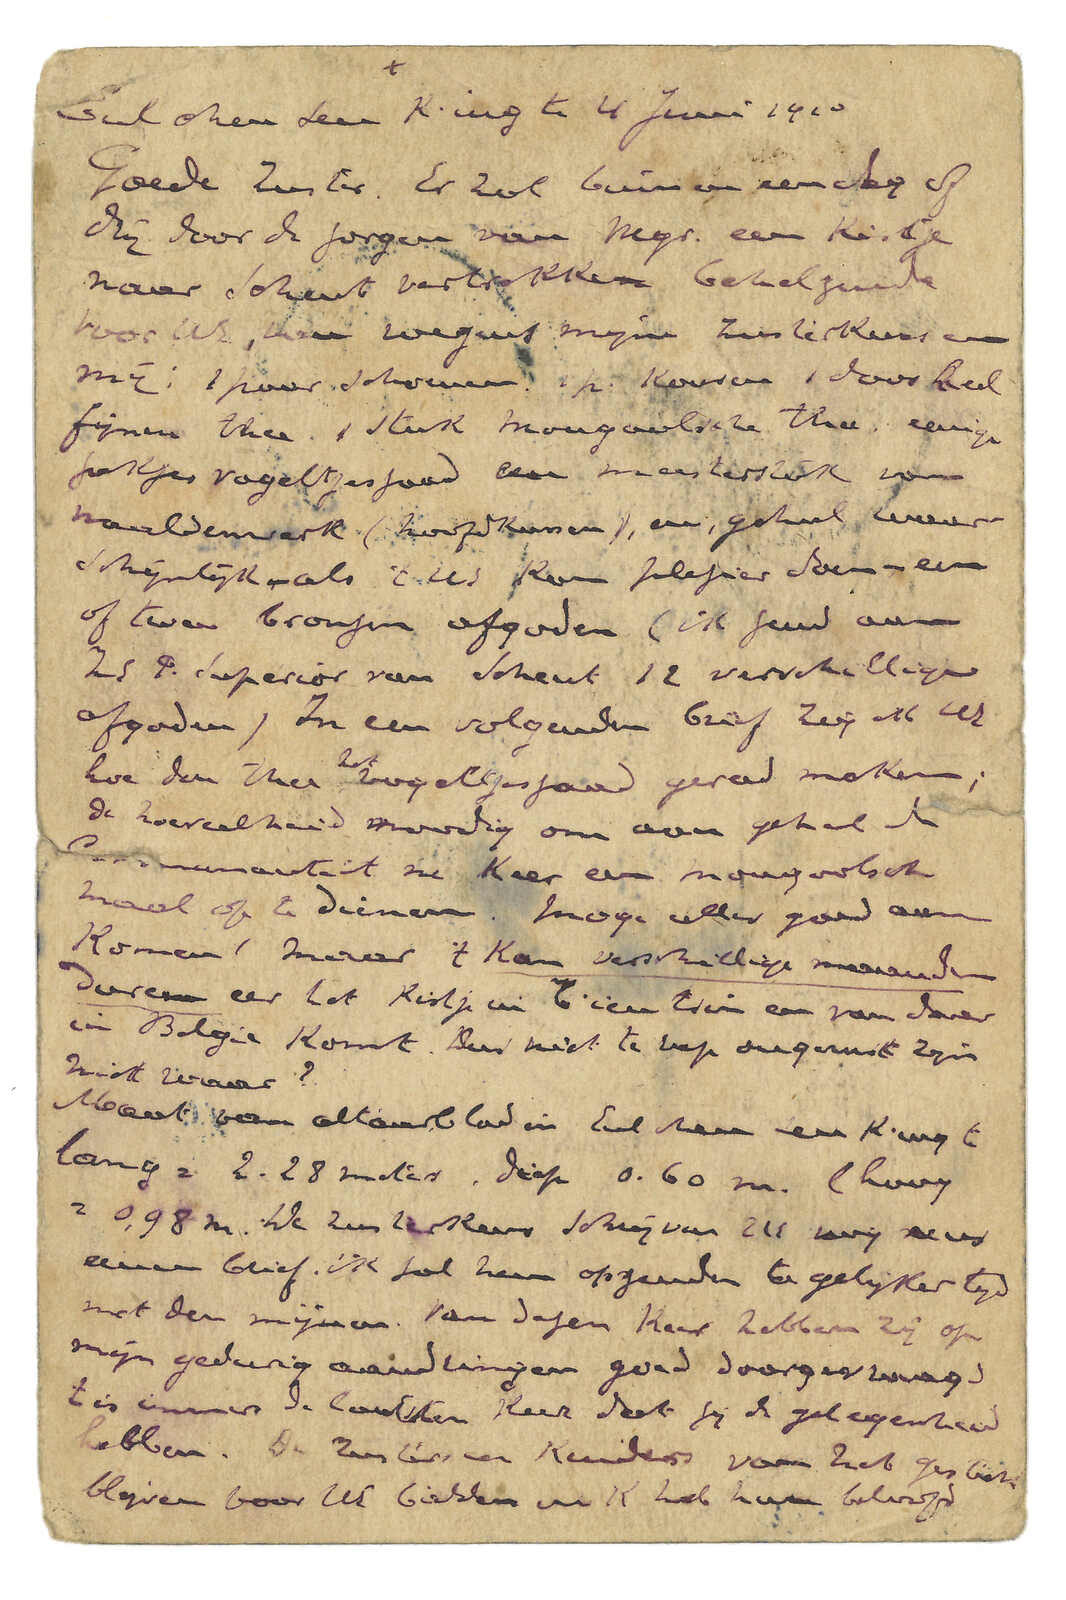 +
Eul chen sen K'ing ti 4 Juni 1910
Goede Zuster. Er zal binnen een dag of
drij door de zorgen van Mgr. een kistje
naar Scheut vertrekken behelzende
voor UE, van wegens mijne zusterkens en
mij: 1 paar schoenen. 1 p. kousen 1 doos heel
fijnen thee. 1 stuk mongoolsche thee. eenige
zakjes vogeltjeszaad een meesterstuk van
naaldenwerk (hoofdkussen), en, geheel waar-
schijnlijk - als 't UE kan plezier doen - een
of twee bronzen afgoden (ik zend aan
ZE P. Superior van Scheut 12 verschillige
afgoden) In een volgenden brief zeg ik UE
hoe den thee het vogeltjeszaad gereed maken;
de hoeveelheid noodig om aan geheel de
Communauteit ne keer een mongoolsch
maal op te dienen. Moge alles goed aan
komen! maar 't kan verschillige maanden
duren eer het kistje in T'ien tsin en van daar
in Belgie komt. Dus niet te veel ongerust zijn
niet waar?
Maat van altaarblad in Eul chen sen K'ing ti
lang = 2.28 meters. diep 0.60 m. (hoog
= 0,98 m. De zusterkens schrijven UE nog eens
eenen brief. ik zal hem opzenden te gelijker tijd
met den mijnen. Van dezen keer hebben zij op
mijn gedurig aandringen goed doorgevraagd
't is immers de laatsten keer dat zij de gelegenheid
hebben. De zusters en kinders van het gesticht
blijven voor UE bidden en k heb hun beloofd